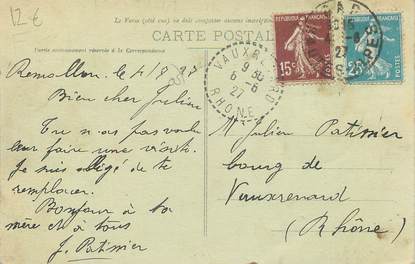 12€
Le Verso (côté vue) ne doit comporter aucune inscription
CARTE POSTALE
Partie exclusivement réservée à la Correspondance
RÉPUBLIQUE FRANÇAISE
15c
POSTES
RÉPUBLIQUE FRANÇAISE
25c
VAUXRENARD
9 30
6 - 8
27
RHONE
Remollon le 4/8 27
Bien cher Julien
Tu n'as pas voulu
leur faire une visite.
Je suis obligé de te
remplacer.
Bonjour à ta
mère et à tous
J. Patissier
M. Julien Patissier
bourg de
Vauxrenard
(Rhône)